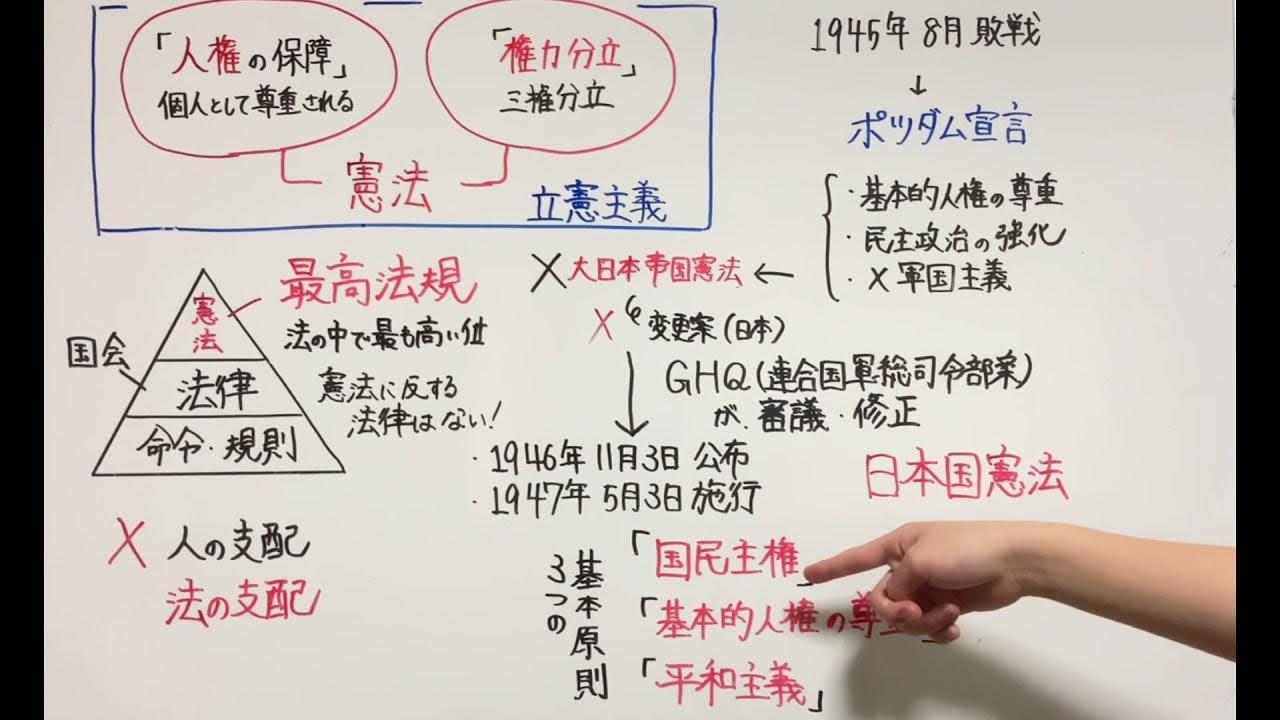 「人権の保障」
個人として尊重される
「権力分立」
三権分立
憲法
立憲主義
1945年8月敗戦
↓
ポツダム宣言
・基本的人権の尊重
・民主政治の強化
・×軍国主義
×大日本帝国憲法←
× 変更案(日本)
GHQ(連合国軍総司令部案)
が、審議・修正
・1946年11月3日 公布
・1947年5月3日 施行
日本国憲法
3つの
基本原則
「国民主権」
「基本的人権の尊重
「平和主義」
最高法規
法の中で最も高い位
憲法に反する
法律はない!
国会
憲法
法律
命令・規則
× 人の支配
法の支配